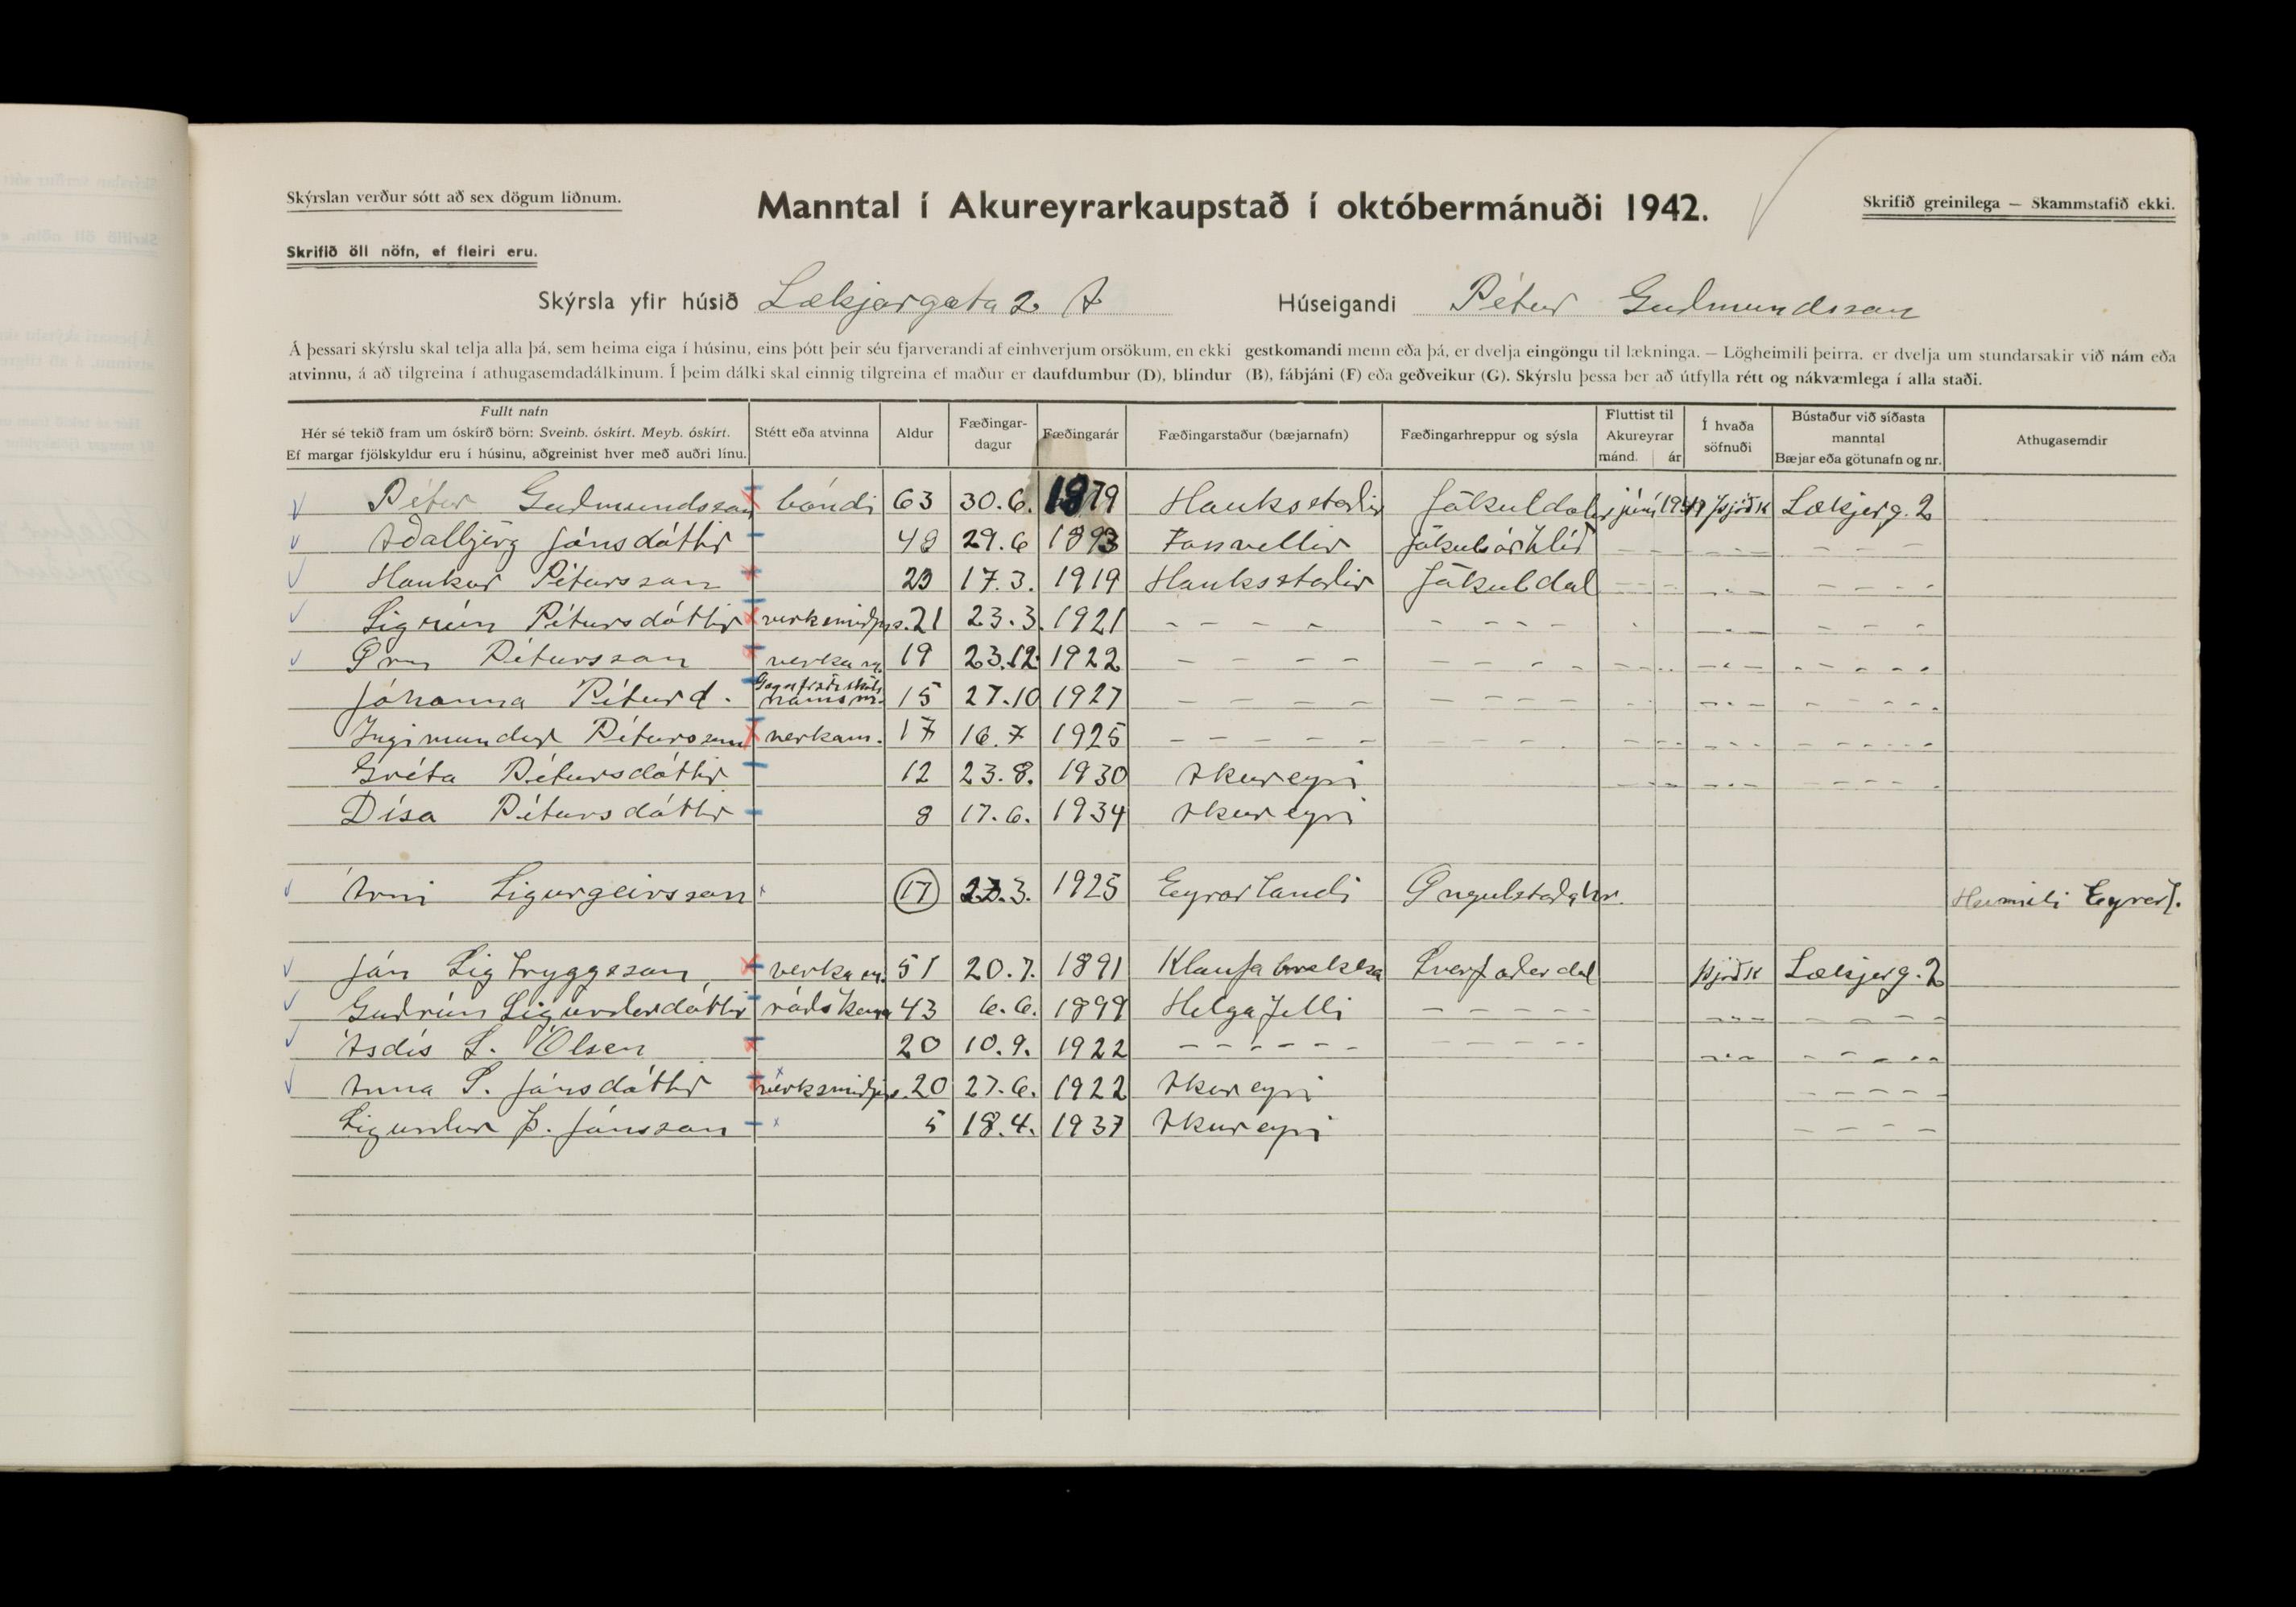 Skýrslan verður sótt að sex dögum liðnum.
Manntal í Akureyrarkaupstað í októbermánuði 1942.
Skrifið greinilega — Skammstafið ekki.
Skrifið öll nöfn, ef fleiri eru.
Skýrsla yfir húsið Lækjargata 2 A Húseigandi Pétur Guðmundsson
Á þessari skýrslu skal telja alla þá, sem heima eiga í húsinu, eins þótt þeir séu fjarverandi af einhverjum orsökum, en ekki gestkomandi menn eða þá, er dvelja eingöngu til lækninga. — Lögheimili þeirra, er dvelja um stundarsakir við nám eða
atvinnu, á að tilgreina í athugasemdadálkinum. Í þeim dálki skal einnig tilgreina ef maður er daufdumbur (D), blindur (B), fábjáni (F) eða geðveikur (G). Skýrslu þessa ber að útfylla rétt og nákvæmlega í alla staði.
Fullt nafn
Hér sé tekið fram um óskírð börn: Sveinb. óskírt. Meyb. óskírt.
Ef margar fjölskyldur eru í húsinu, aðgreinist hver með auðri línu.
Stétt eða atvinna
Aldur
Fæðingar-
dagur
Fæðingarár
Fæðingarstaður (bæjarnafn)
Fæðingarhreppur og sýsla
Fluttist til
Akureyrar
mánd. ár
Í hvaða
söfnuði
Bústaður við síðasta
manntal
Bæjar eða götunafn og nr.
Athugasemdir
Pétur Guðmundsson bóndi 63 30.6. 1879 Hauksstaðir Jökuldal júní þjóðk Lækjarg. 2
Aðalbjörg Jónsdóttir 48 29.6 1893 Fossvellir Jökulsárhlíð - - - - - - - -
Haukur Pétursson 23 17.3. 1919 Hauksstaðir Jökuldal - - - - - - - -
Sigrún Pétursdóttir verksmiðjus. 21 23.3. 1921 - - - - - - - - - - - - - -
Örn Pétursson verkam. 19 23.12 1922 - - - - - - - - - - - - - - - -
Jóhanna Péturd. Gagnfræðaskóla
námsm. 15 27.10 1927 - - - - - - - - - - - - - - -
Ingimundur Pétursson verkam. 17 16.7 1925 - - - - - - - - - - - - - - - -
Gréta Pétursdóttir 12 23.8. 1930 Akureyri - - - - - - - - - -
Dísa Pétursdóttir 8 17.6. 1934 Akureyri
Árni Sigurgeirsson 17 .3. 1925 Eyrarlandi Öngulstaðahr. Heimili Eyrarl.
Jón Sigtryggsson verkam. 51 20.7. 1891 Klaufabrekka Svarfaðardal þjóðk Lækjarg. 2
Guðrún Sigurðardóttir ráðskona 43 6.6. 1899 Helgafelli - - - - - - - - - - - -
Ásdís S. Ólsen 20 10.9. 1922 - - - - - - - - - - - - - - - - - -
Anna S. Jónsdóttir verksmiðjus. 20 27.6. 1922 Akureyri - - - -
Sigurður Þ. Jónsson 5 18.4. 1937 Akureyri - - - -